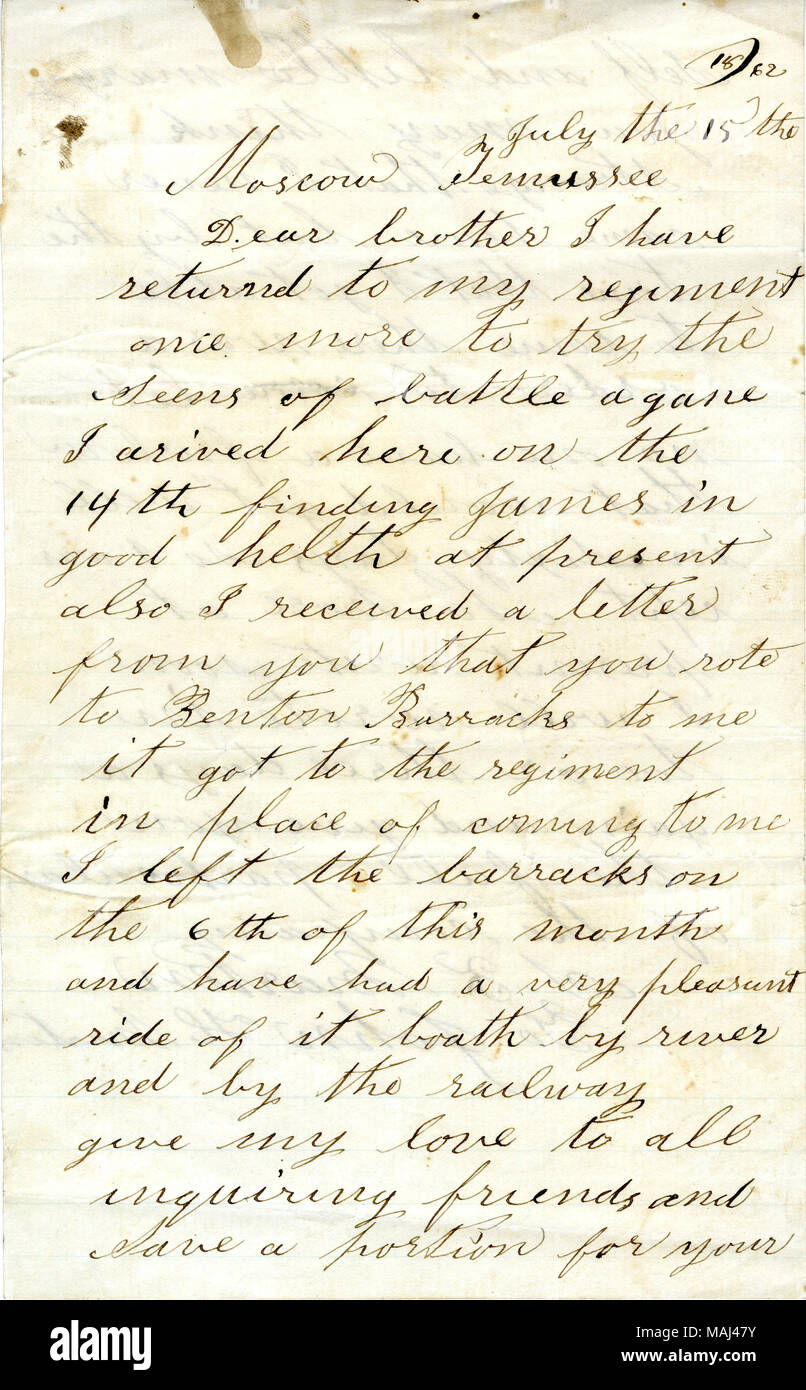 18)62
July the 15 the
Moscow Tennussee
Dear brother I have
returnd to my regiment
once more to try the
seens of battle agane
I arived here on the
14th finding James in
good helth at present
also I received a letter
from you that you rote
to Benton Barracks to me
it got to the regiment
in place of coming to me
I left the barracks on
the 6th of this month
and have had a very pleasant
ride of it boath by river
and by the railway
give my love to all
inquiring friends and
save a portion for your
alamy
Image ID: MAJ47Y
www.alamy.com